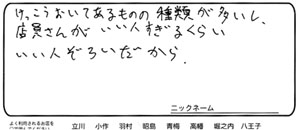 けっこうおいてあるものの種類が多いし、
店員さんがいい人すぎるくらい
いい人ぞろいだから.
ニックネーム
よく利用されるお店を
立川 小作 羽村 昭島 青梅 高幡 堀之内 八王子